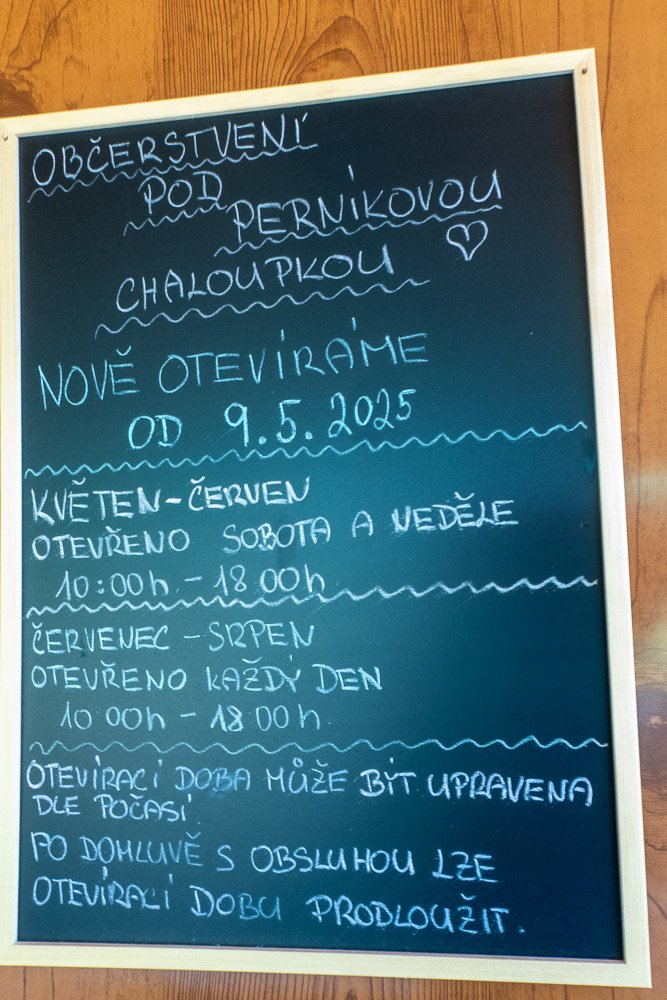 OBČERSTVENÍ
POD
PERNÍKOVOU
CHALOUPKOU
NOVĚ OTEVÍRÁME
OD 9.5.2025
KVĚTEN-ČERVEN
OTEVŘENO SOBOTA A NEDĚLE
10:00h - 18 00h
ČERVENEC - SRPEN
OTEVŘENO KAŽDÝ DEN
10 00h - 18 00h.
OTEVÍRACÍ DOBA MŮŽE BÍT UPRAVENA
DLE POČASÍ.
PO DOMLUVĚ S OBSLUHOU LZE
OTEVÍRACÍ DOBU PRODLOUŽIT.